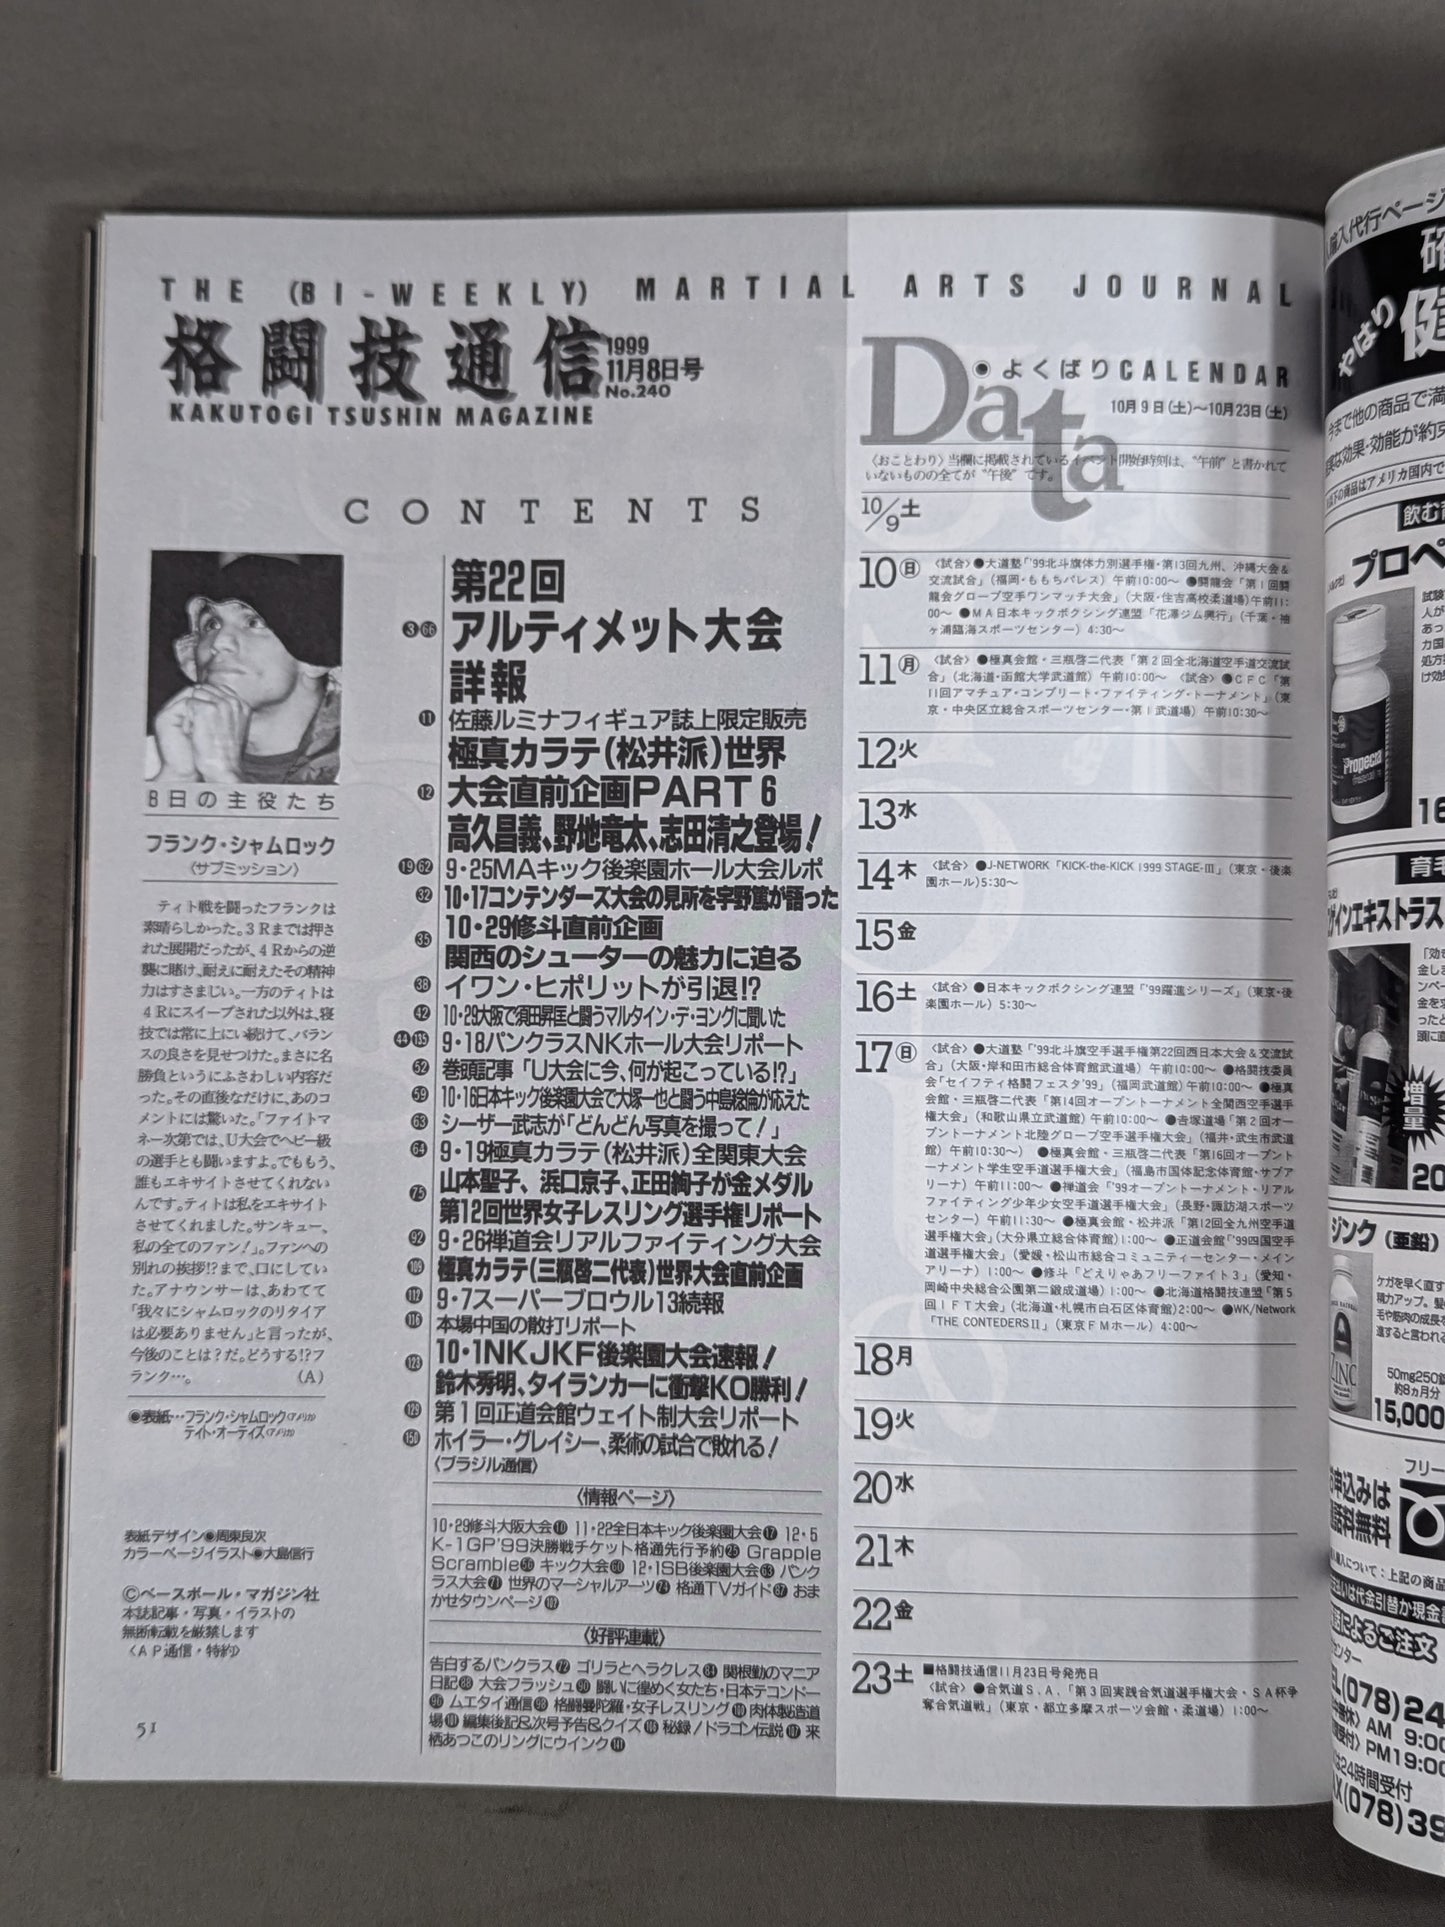 THE (BI-WEEKLY) MARTIAL ARTS JOURNAL
格闘技通信
1999
11月8日号
No.240
KAKUTOGI TSUSHIN MAGAZINE
CONTENTS
8日の主役たち
フランク・シャムロック
〈サブミッション〉
ティト戦を闘ったフランクは
素晴らしかった。3Rまでは押さ
れた展開だったが、4Rからの逆
襲に賭け、耐えに耐えたその精神
力はすさまじい。一方のティトは
4Rにスイープされた以外は、寝
技では常に上にい続けて、バラン
スの良さを見せつけた。まさに名
勝負というにふさわしい内容だ
った。その直後なだけに、あのコ
メントには驚いた。「ファイトマ
ネー次第では、U大会でヘビー級
の選手とも闘いますよ。でももう、
誰もエキサイトさせてくれない
んです。ティトは私をエキサイト
させてくれました。サンキュー、
私の全てのファン!」。ファンへの
別れの挨拶!?まで、口にしてい
た。アナウンサーは、あわてて
「我々にシャムロックのリタイア
は必要ありません」と言ったが、
今後のことは?だ。どうする!?フ
ランク…。 (A)
◉表紙…フランク・シャムロック〈アメリカ〉
ティト・オーティズ〈アメリカ〉
表紙デザイン◉周東良次
カラーページイラスト◉大島信行
©ベースボール・マガジン社
本誌記事・写真・イラストの
無断転載を厳禁します
〈AP通信・特約〉
51
第22回
3 66 アルティメット大会
詳報
11 佐藤ルミナフィギュア誌上限定販売
極真カラテ(松井派)世界
12 大会直前企画PART6
高久昌義、野地竜太、志田清之登場!
19 62 9・25MAキック後楽園ホール大会ルポ
32 10・17コンテンダーズ大会の見所を宇野薫が語った
35 10・29修斗直前企画
関西のシューターの魅力に迫る
38 イワン・ヒポリットが引退!?
42 10・29大阪で須田昇匡と闘うマルタイン・デ・ヨングに聞いた
44 135 9・18パンクラスNKホール大会リポート
52 巻頭記事「U大会に今、何が起こっている!?」
59 10・16日本キック後楽園大会で大塚一也と闘う中島稔倫が応えた
63 シーザー武志が「どんどん写真を撮って!」
64 9・19極真カラテ(松井派)全関東大会
75 山本聖子、浜口京子、正田絢子が金メダル
第12回世界女子レスリング選手権リポート
92 9・26禅道会リアルファイティング大会
109 極真カラテ(三瓶啓二代表)世界大会直前企画
112 9・7スーパーブロウル13続報
116 本場中国の散打リポート
123 10・1NKJKF後楽園大会速報!
鈴木秀明、タイランカーに衝撃KO勝利!
129 第1回正道会館ウェイト制大会リポート
150 ホイラー・グレイシー、柔術の試合で敗れる!
〈ブラジル通信〉
〈情報ページ〉
10・29修斗大阪大会 11・22全日本キック後楽園大会17 12・5
K-1GP'99決勝戦チケット格通先行予約25 Grapple
Scramble50 キック大会60 12・1SB後楽園大会63 パンク
ラス大会71 世界のマーシャルアーツ74 格通TVガイド87 おま
かせタウンページ107
〈好評連載〉
告白するパンクラス72 ゴリラとヘラクレス84 関根勤のマニア
日記88 大会フラッシュ90 闘いに煌めく女たち・日本テコンドー
96 ムエタイ通信98 格闘曼陀羅・女子レスリング 肉体製造道
場 編集後記&次号予告&クイズ 秘録!ドラゴン伝説 来
栖あつこのリングにウインク
Data
◉よくばりCALENDAR
10月9日(土)〜10月23日(土)
〈おことわり〉当欄に掲載されているイベント開始時刻は、“午前”と書かれて
いないものの全てが“午後”です。
10/9土
10㊐ 〈試合〉●大道塾「'99北斗旗体力別選手権・第13回九州、沖縄大会&
交流試合」(福岡・ももちパレス) 午前10:00〜 ●闘龍会「第1回闘
龍会グローブ空手ワンマッチ大会」(大阪・住吉高校柔道場)午前11:
00〜 ●MA日本キックボクシング連盟「花澤ジム興行」(千葉・袖
ヶ浦臨海スポーツセンター) 4:30〜
11㊊ 〈試合〉●極真会館・三瓶啓二代表「第2回全北海道空手道交流試
合」(北海道・函館大学武道館) 午前10:00〜 〈試合〉●CFC「第
11回アマチュア・コンプリート・ファイティング・トーナメント」(東
京・中央区立総合スポーツセンター・第1武道場) 午前10:30〜
12火
13水
14木 〈試合〉●J-NETWORK「KICK-the-KICK 1999 STAGE-Ⅲ」(東京・後楽
園ホール)5:30〜
15金
16土 〈試合〉●日本キックボクシング連盟「'99躍進シリーズ」(東京・後
楽園ホール) 5:30〜
17㊐ 〈試合〉●大道塾「'99北斗旗空手選手権第22回西日本大会&交流試
合」(大阪・岸和田市総合体育館武道場) 午前10:00〜 ●格闘技委員
会「セイフティ格闘フェスタ'99」(福岡武道館)午前10:00〜 ●極真
会館・三瓶啓二代表「第14回オープントーナメント全関西空手選手
権大会」(和歌山県立武道館) 午前10:00〜 ●𠮷塚道場「第2回オー
プントーナメント北陸グローブ空手選手権大会」(福井・武生市武道
館) 午前10:30〜) ●極真会館・三瓶啓二代表「第16回オープント
ーナメント学生空手道選手権大会」(福島市国体記念体育館・サブア
リーナ) 午前11:00〜 ●禅道会「'99オープントーナメント・リアル
ファイティング少年少女空手道選手権大会」(長野・諏訪湖スポーツ
センター) 午前11:30〜 ●極真会館・松井派「第12回全九州空手道
選手権大会」(大分県立総合体育館)1:00〜 ●正道会館「'99四国空手
道選手権大会」(愛媛・松山市総合コミュニティーセンター・メイン
アリーナ) 1:00〜 ●修斗「どえりゃあフリーファイト3」(愛知・
岡崎中央総合公園第二鍛成道場) 1:00〜 ●北海道格闘技連盟「第5
回IFT大会」(北海道・札幌市白石区体育館)2:00〜 ●WK/Network
「THE CONTEDERSⅡ」(東京FMホール) 4:00〜
18月
19火
20水
21木
22金
23土 ■格闘技通信11月23日号発売日
〈試合〉●合気道S.A.「第3回実践合気道選手権大会・SA杯争
奪合気道戦」(東京・都立多摩スポーツ会館・柔道場) 1:00〜
輸入代行ページ
やはり
今まで他の商品で満
効果・効能が約束
の商品はアメリカ国内で
飲む育
プロペ
Propecia
16
育毛
ゲインエキストラス
増量
20
ジンク(亜鉛)
ZINC
ケガを早く直す
精力アップ。髪
毛や筋肉の成長を
進すると言われる
50mg250錠
約8ヵ月分
15,000
フリー
お申込みは
話料無料
入について:上記の商品
払いは代金引替か現金書
話によるご注文
センター
TEL(078)24
AM 9:00
PM19:00
は24時間受付
FAX(078)39